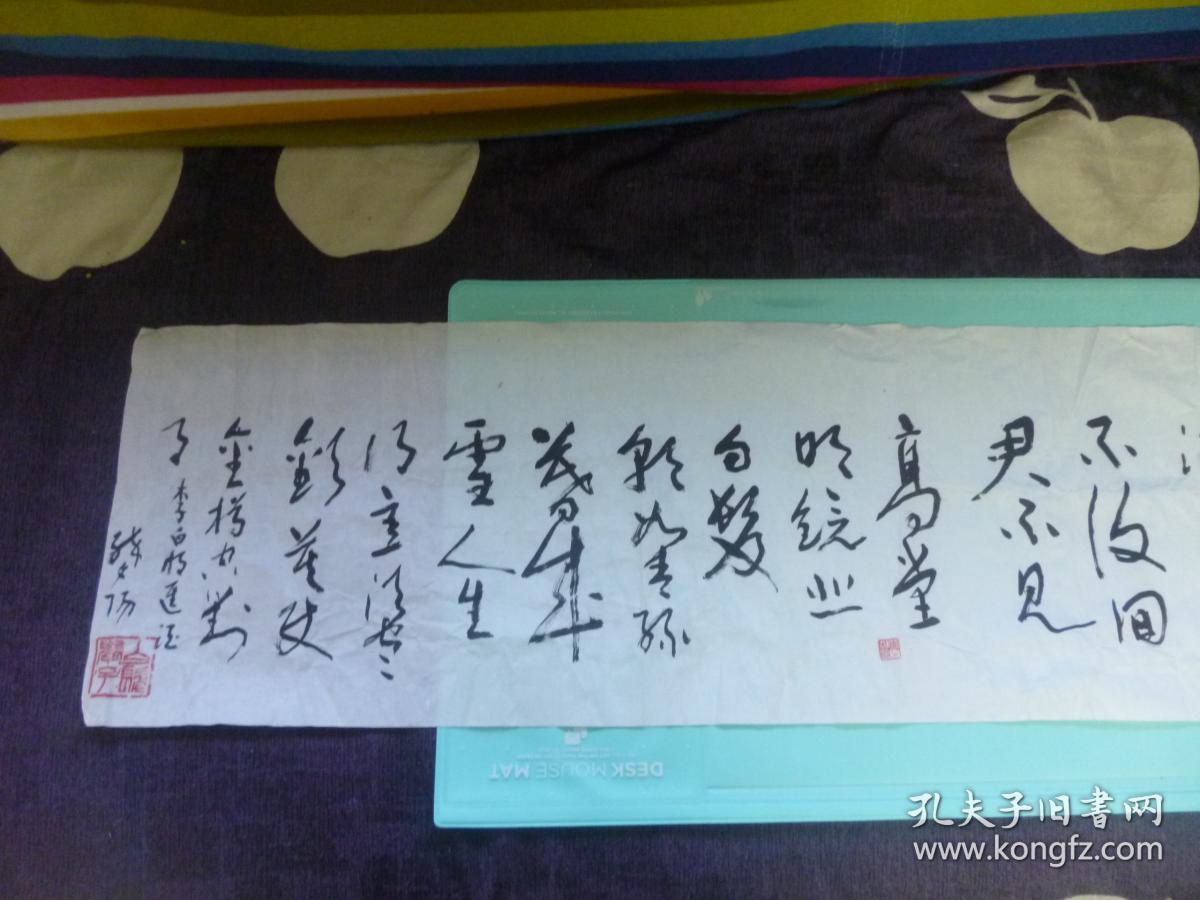 不復回
君不見
高堂
明鏡悲
白髮
朝如青絲
暮成
雪人生
得意須盡
歡莫使
金樽空對
月 李白將進酒
DESK MOUSE MAT
孔夫子旧书网
www.kongfz.com